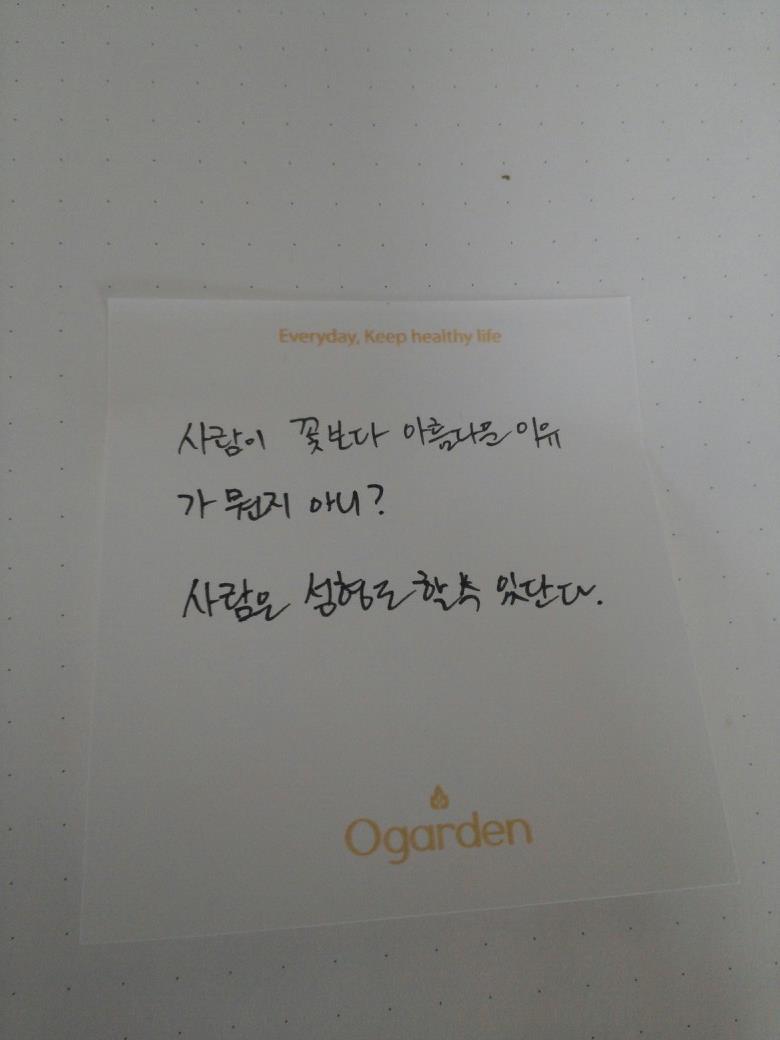 Everyday, Keep healthy life
사람이 꽃보다 아름다운 이유
가 뭔지 아니?
사람은 성형도 할 수 있단다.
Ogarden